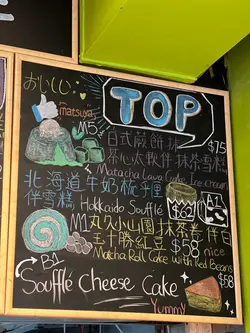 おいしい
TOP
matsuya
M5
日式煎餅抹
茶心太軟伴抹茶雪糕
$75
Matacha Lava Cake Ice cream
nice
北海道牛奶梳乎厘
伴雪糕
Hokkaido Soufflé
$62
A1
M1
丸久小山園抹茶卷伴
十勝紅豆
$58
Matcha Roll Cake with Red Beans
B1
$58
Soufflé Cheese Cake
Yummy